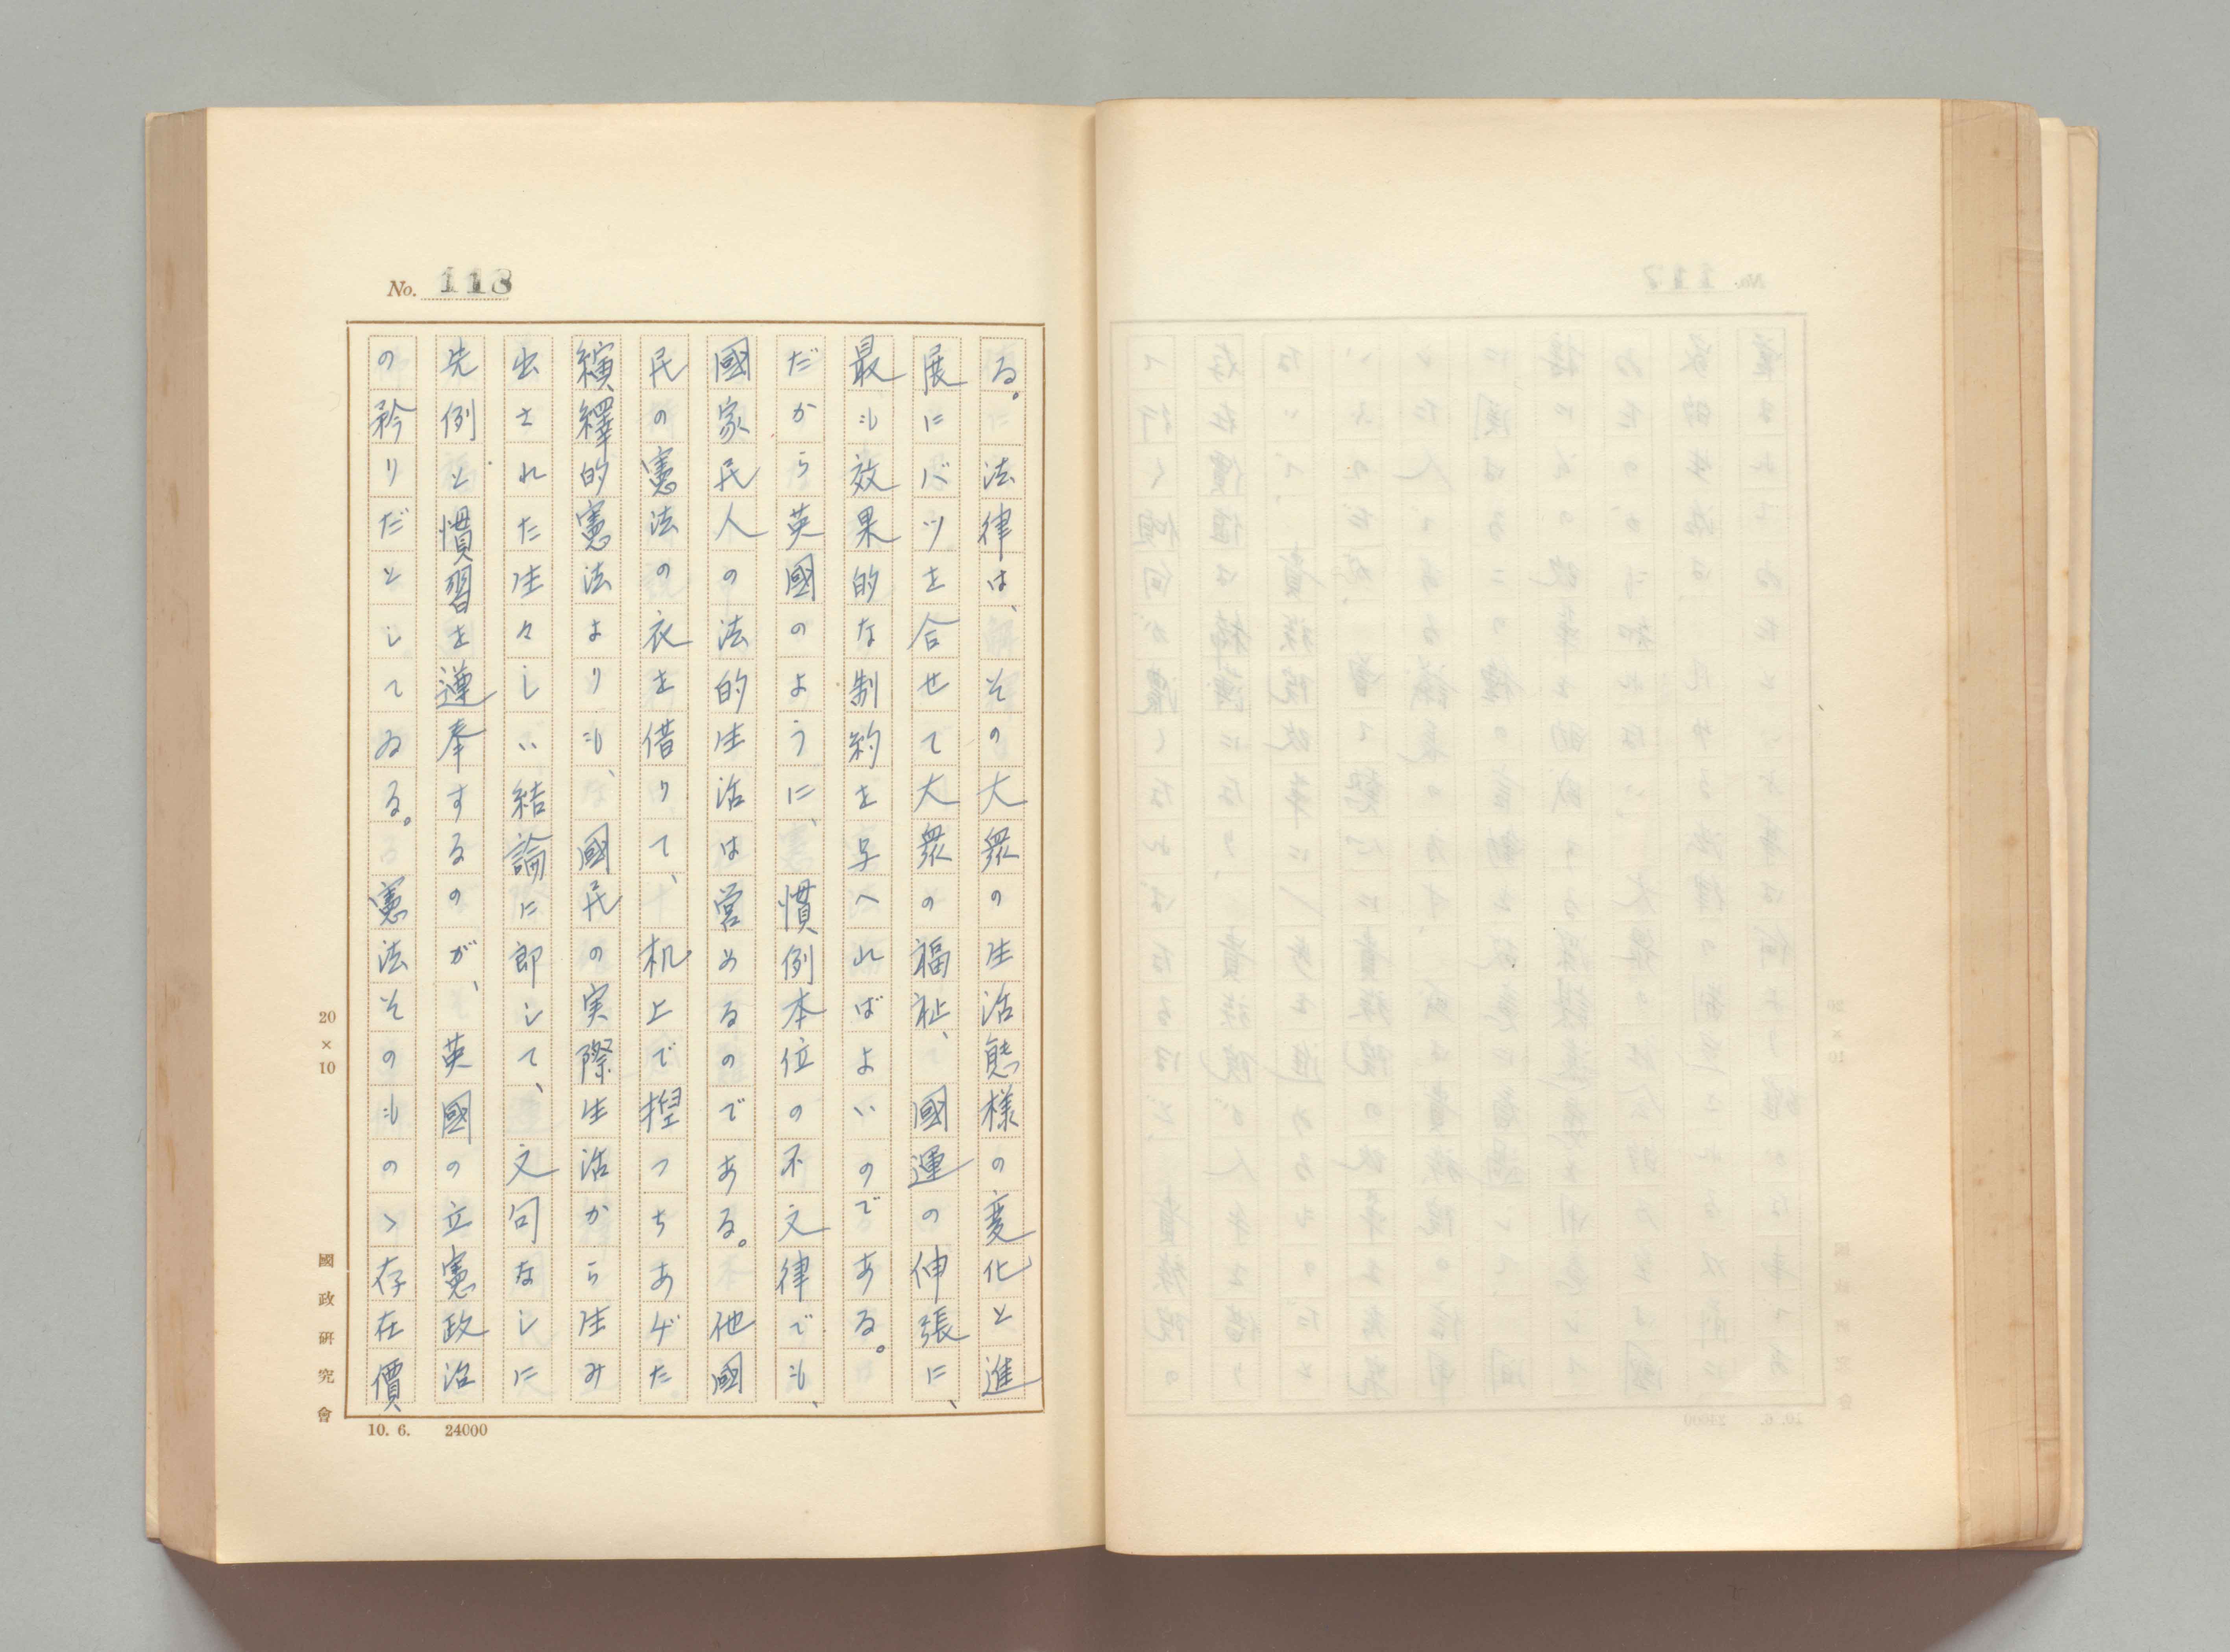 No. 118
る。法律は、その大衆の生活態様の変化と進
展にバツを合せて大衆の福祉、國運の伸張に、
最も效果的な制約を与へればよいのである。
だから英國のように、慣例本位の不文律でも、
國家民人の法的生活は営めるのである。他國
民の憲法の衣を借りて、机上で揑つちあげた
繽繹的憲法よりも、國民の実際生活から生み
出された生々しい結論に即して、文句なしに
先例と慣習を遵奉するのが、英國の立憲政治
の矜りだとしてゐる。憲法そのものゝ存在價
20×10
國政研究會
10. 6. 24000